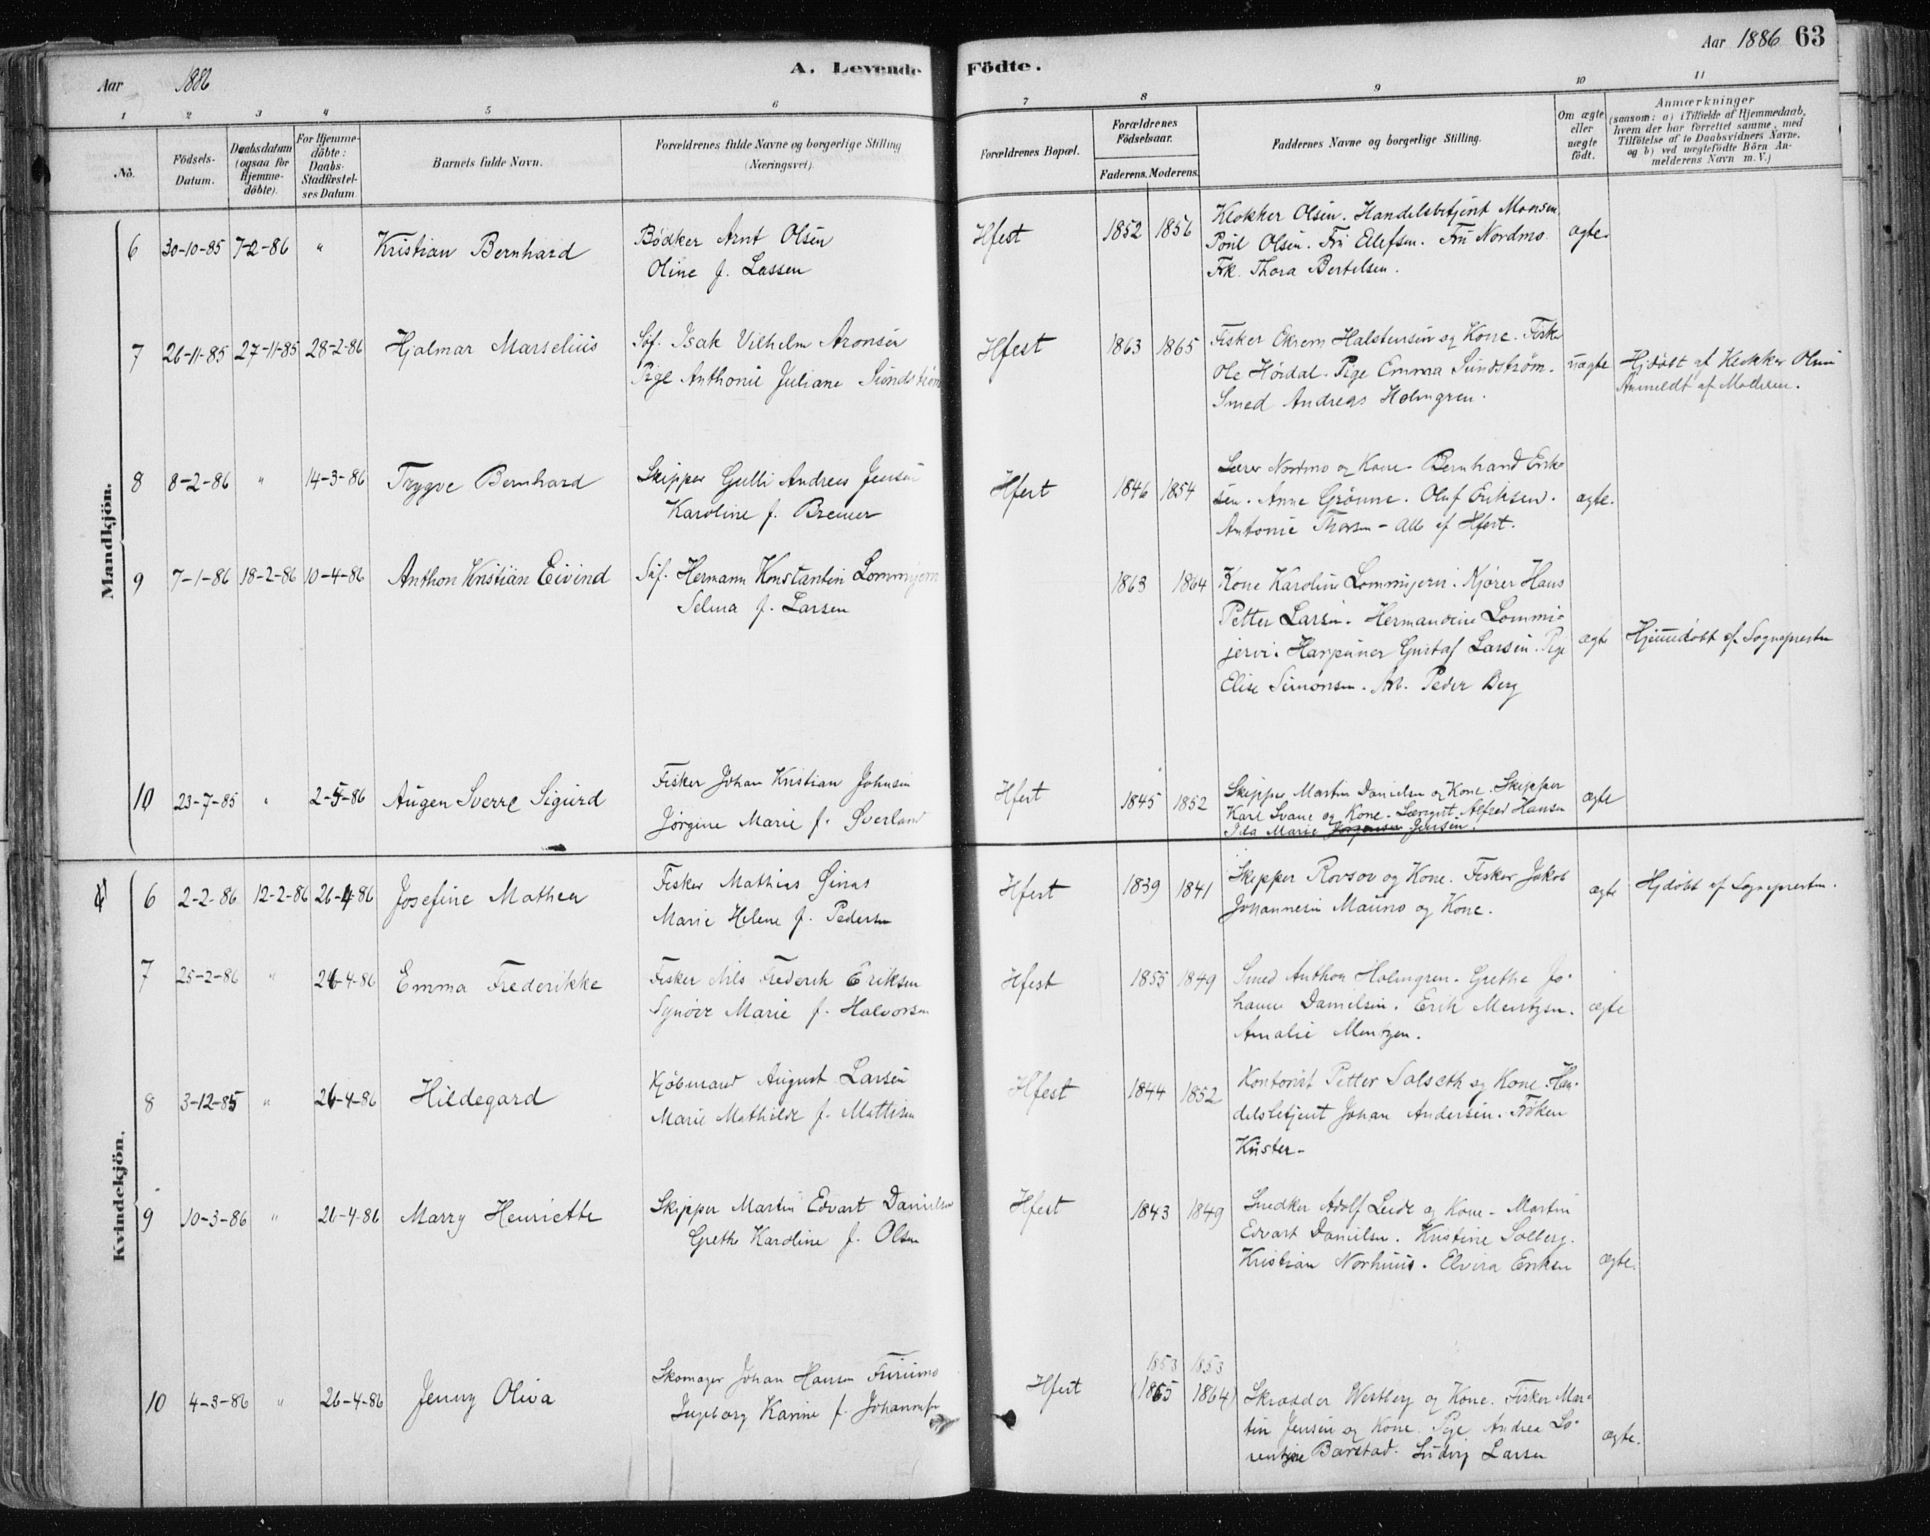 Aar 1886
A. Levende Födte.
Aar 1886 63
1 2 3 4 5 6 7 8 9 10 11
No.
Födsels-Datum.
Daabsdatum (ogsaa for Hjemmedöbte).
For Hjemmedöbte: Daabs-Stadfæstelses Datum
Barnets fulde Navn.
Forældrenes fulde Navne og borgerlige Stilling (Næringsvei).
Forældrenes Bopæl.
Forældrenes Födselsaar.
Faderens. Moderens.
Faddernes Navne og borgerlige Stilling.
Om ægte eller uægte födt.
Anmærkninger
(saasom: a) i Tilfælde af Hjemmedaab, hvem der har forrettet samme, med Tilföielse af to Daabsvidners Navne, og b) ved uægtefödte Börn Anmelderens Navn m. V.)
Mandkjön.
6 30-10-85 7-2-86 " Kristian Bernhard
Bødker Arnt Olsen
Oline f. Lassen
Hfest 1852 1856
Klokker Olsen. Handelsbetjent Monsen.
Poul Olsen. Fru Ellefsen. Fru Nordmo
Frk. Thora Bertelsen.
ægte.
7 26-11-85 27-11-85 28-2-86 Hjalmar Marselius
Søf. Isak Vilhelm Aronsen
Pige Anthonie Juliane Sundstrøm
Hfest 1863 1865
Fisker Ekrem Halstensen og Kone. Fisker
Ole Hørdal. Pige Emma Sundstrøm.
Smed Andreas Holmgren.
uægte
Hjdøbt af Klokker Olsen
Anmeldt af Moderen.
8 8-2-86 " 14-3-86 Trygve Bernhard
Skipper Gulli Andreas Jensen
Karoline f. Bremer
Hfest 1846 1854
Lærer Nordmo og Kone. Bernhard Erik-
sen. Anne Grønne. Oluf Eriksen.
Antonie Thorsen - alle af Hfest.
ægte.
9 7-1-86 18-2-86 10-4-86 Anthon Kristian Eivind
Søf. Hermann Konstantin Lommijervi
Selma f. Larsen
1863 1864
Kone Karoline Lommijervi. Kjører Hans
Petter Larsen. Hermandine Lommi-
jervi. Harpuner Gustaf Larsen. Pige
Elise Simonsen. Arb. Peder Berg
ægte
Hjemmedøbt af Sognepresten
10 23-7-85 " 2-5-86 Augen Sverre Sigurd
Fisker Johan Kristian Johnsen
Jørgine Marie f. Øverland
Hfest 1845 1852
Skipper Martin Danielsen og Kone. Skipper
Karl Svane og Kone. Alfred Hansen
Ida Marie Jensen.
ægte
Kvindekjön.
6 2-2-86 12-2-86 26-4-86 Josefine Mathea
Fisker Mathias
Marie Helene f. Pedersen
Hfest 1839 1841
Skipper og Kone. Fisker Jakob
Johannesen Mauno og Kone.
ægte
Hjdøbt af Sognepresten.
7 25-2-86 " 26-4-86 Emma Frederikke
Fisker Nils Frederik Eriksen
Synøve Marie f. Halvorsen
Hfest 1855 1849
Smed Anthon Holmgren. Grethe Jo-
hanne Danielsen. Erik Mentzen.
Amalie Mentzen.
ægte
8 3-12-85 " 26-4-86 Hildegard
Kjøbmand August Larsen
Marie Mathilde f. Mattisen
Hfest 1844 1852
Kontorist Petter Salseth og Kone. Han-
delsbetjent Johan Andersen. Frøken
Küster-
9 10-3-86 " 26-4-86 Marry Henriette
Skipper Martin Edvart Danielsen
Grethe Karoline f. Olsen
Hfest 1843 1849
Snedker Adolf og Kone. Martin
Edvart Danielsen. Kristine Solberg.
Kristian Norhuus. Elvira Eriksen
ægte.
10 4-3-86 " 26-4-86 Jenny Oliva
Skomager Johan Hansen Furumo
Ingeborg Karine f. Johannesen
Hfest
1853 1853
(1865 1864)
Skrædder Westberg og Kone. Fisker Mar-
tin Jensen og Kone. Pige Andrea Lo-
rentzine Barstad. Ludvig Larsen
ægte.